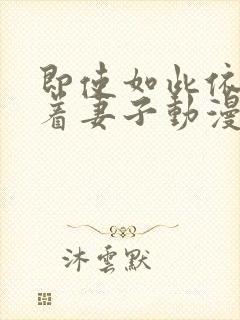 即使如此依
着妻子動漫
沐雲默